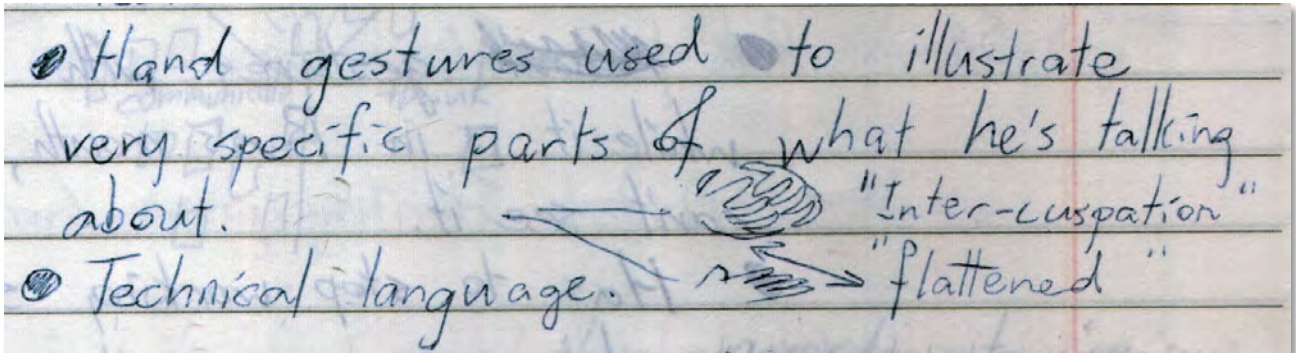 Hand gestures used to illustrate
very specific parts of what he's talking
about. "Inter-cuspation"
Technical language. "flattened"